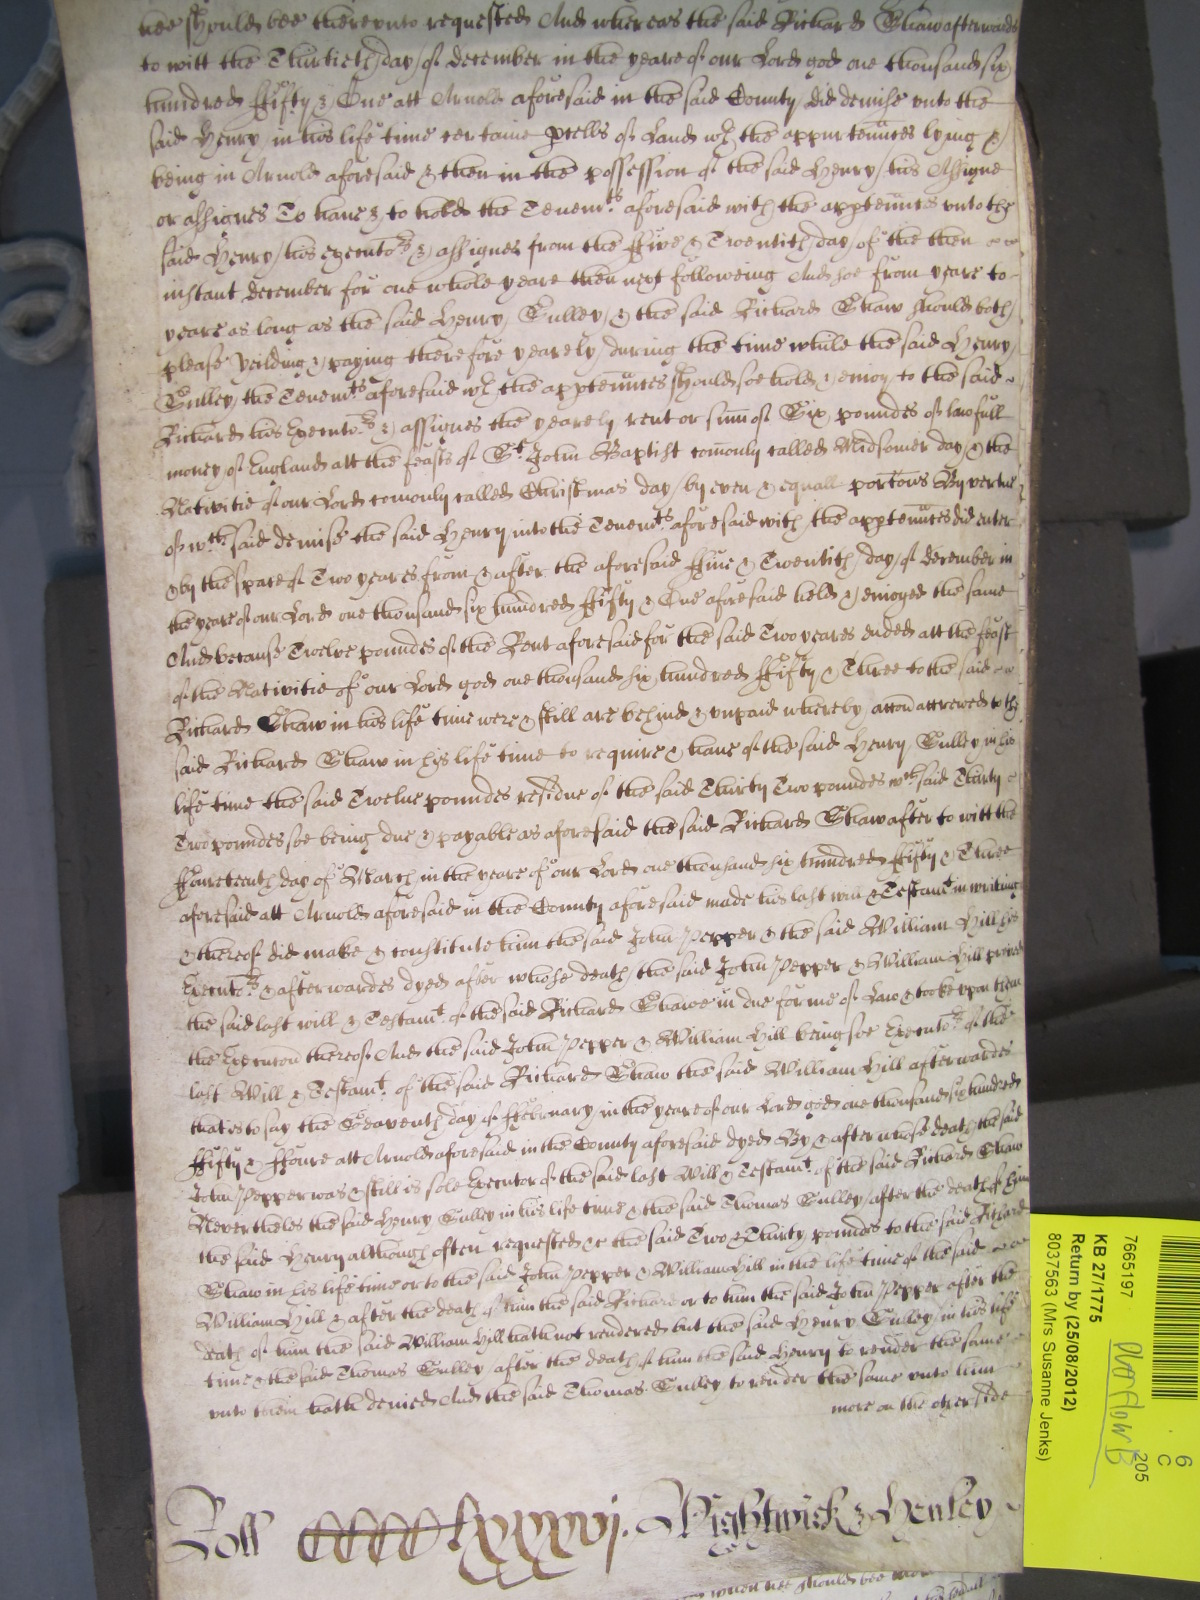 hee should bee thereunto requested And whereas the said Richard Shaw afterwards
to witt the Thirtieth day of december in the yeare of our Lord god one thousand six
hundred ffifty & One att Arnold aforesaid in the said County did demise unto the
said Henry in his life time certaine pcells of Land wth the appurtennces lying &
being in Arnold aforesaid & then in the possession of the said Henry his Assigne
or assignes To have & to hold the Tenemts aforesaid with the apptennces unto the
said Henry his executors & assignes from the ffive & Twentith day of the then
instant december for one whole yeare then next followeing And soe from yeare to
yeare as long as the said Henry Tulley & the said Richard Shaw should both
please Yeilding & paying therefore yearely during the time while the said Henry
Tulley the Tenemts aforesaid wth the apptennces should soe hold & enioy to the said
Richard his Executors & assignes the yearely rent or summ of Six poundes of lawfull
money of England att the feasts of St John Baptist comonly called Midsomer day & the
Nativitie of our Lord comonly called Christmas day by even & equall portons By vertue
of wch said demise the said Henry into the Tenemts aforesaid with the apptennces did enter
& by the space of Two yeares from & after the aforesaid ffive & Twentith day of december in
the yeare of our Lord one thousand six hundred ffifty & One aforesaid held & enioyed the same
And because Twelve poundes of the Rent aforesaid for the said Two yeares ended att the feast
of the Nativitie of our Lord god one thousand six hundred ffifty & Three to the said
Richard Shaw in his life time were & still are behind & unpaid whereby accon accrewed to the
said Richard Shaw in his life time to require & have of the said Henry Tulley in his
life time the said Twelve poundes residue of the said Thirty Two poundes wch said Thirty
Two poundes soe being due & payable as aforesaid the said Richard Shaw after to witt the
ffourteenth day of March in the yeare of our Lord one thousand six hundred ffifty & Three
aforesaid att Arnold aforesaid in the County aforesaid made his last will & Testamt in writing
& thereof did make & constitute him the said John Pepper & the said William Hill his
Executors & afterwardes dyed after whose death the said John Pepper & William Hill proved
the said last will & Testamt of the said Richard Shawe in due forme of Law & tooke upon them
the Execucon thereof And the said John Pepper & William Hill being soe Executors of the
last Will & Testamt of the said Richard Shaw the said William Hill afterwardes
that is to say the Seaventh day of ffebruary in the yeare of our Lord god one thousand six hundred
ffifty & ffoure att Arnold aforesaid in the County aforesaid dyed By & after whose death the said
John Pepper was & still is sole Executor of the said last Will & Testamt of the said Richard Shaw
Nevertheles the said Henry Tulley in his life time & the said Thomas Tulley after the death of him
the said Henry although often requested &c the said Two & Thirty poundes to the said Richard
Shaw in his life time or to the said John Pepper & William Hill in the life time of the said
William Hill & after the death of him the said Richard or to him the said John Pepper after the
death of him the said William Hill hath not rendered but the said Henry Tulley in his life
time & the said Thomas Tulley after the death of him the said Henry to render the same
unto them hath denied And the said Thomas Tulley to render the same unto him
more on the other side
Roll CCCClxxxvj. Wightwick & Henley
7665197
KB 27/1775
Return by (25/08/2012)
8037563 (Mrs Susanne Jenks)
6
C
205